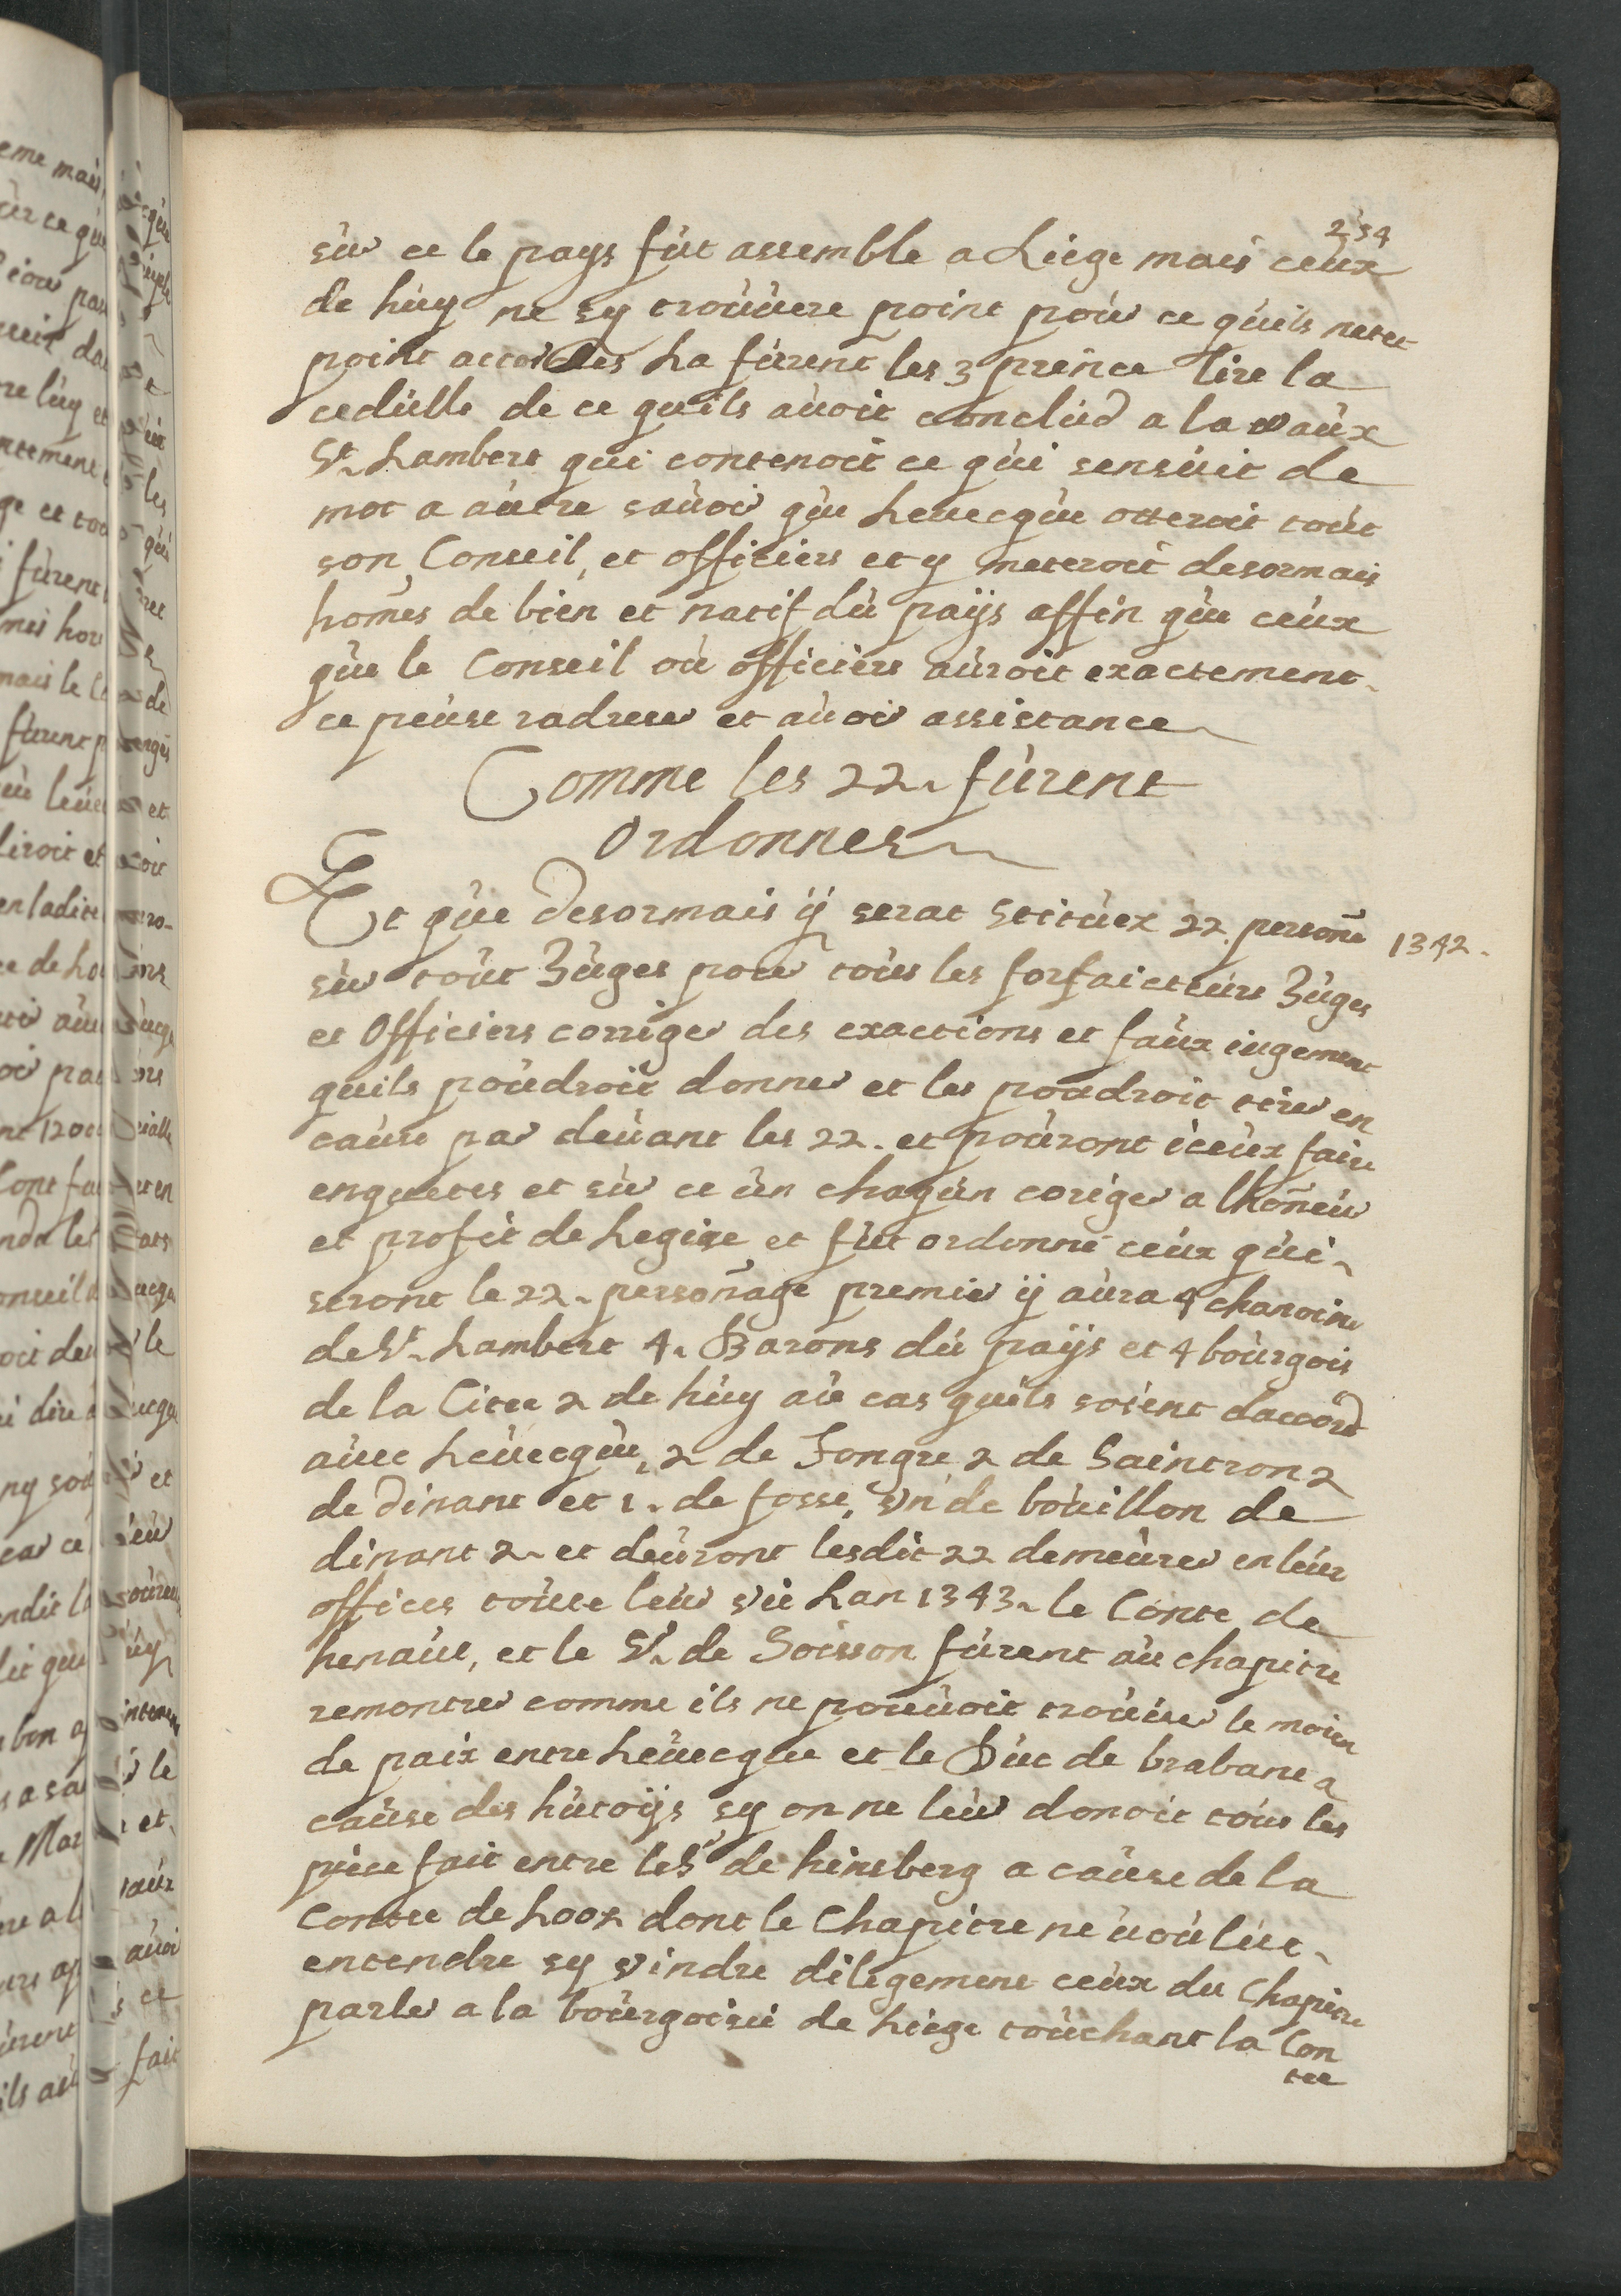 234
sur ce le pays fut assemble a Liege mais ceux
de huy ne sy trouvere point pour ce quils netee
point accordes La furent les 3 prence lire la
cedulle de ce quils avoit conclud a la vaux
St. Lambert qui contenoit ce qui sensuit de
mot a autre savoir que Levecque otteroit tout
son Conseil, et officiers et y meteroit desormais
homes de bien et natif du païjs affin que ceux
que le Conseil ou officiers auroit exactement
ce peuse radrese et avoir assistance
Comme les 22. furent
ordonnes
Et que desormais ij serat stituez 22. persone
1342.
sur tout Juges pour tous les forfaicteurs Juges
et Officiers corriger des exactions et faux iugement
quils poudroit donner et les poudroit tirer en
cause par devant les 22. et pouront iceux faire
enquetes et sur ce un chaqun coriger a lhoneur
et profit de Legise et fut ordonné ceux qui
seront le 22. personage premier ij aura 4 chanoine
de St. Lambert 4. Barons du païjs et 4 bourgois
de la Citee 2 de huy au cas quils soient daccord
avec Levecque, 2 de Tongre 2 de Saintron 2
de dinant et 1. de fosse, un de bouillon de
dinant 2. et deuront lesdit 22 demeurer en leur
offices toutte leur vie Lan 1343. le Conte de
henaut, et le Sr. de Soisson furent au chapitre
remontrer comme ils ne pouuoit trouver le moien
de paix entre Levecque et le Duc de brabant a
cause des hutoijs sy on ne leur donoit tous les
piece fait entre le Sr de hinsberg a cause de la
Contee de Looz dont le Chapitre ne uoulut
entendre sy vindre diligement ceux du Chapitre
parler a la bourgoisie de Liege touchant la Con
tee